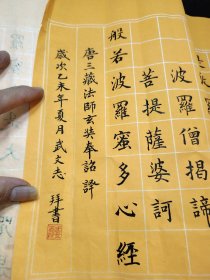 波羅僧揭諦
菩提薩婆訶
般若波羅蜜多心經
唐三藏法師玄奘奉詔譯
歲次乙未年夏月武文志拜書